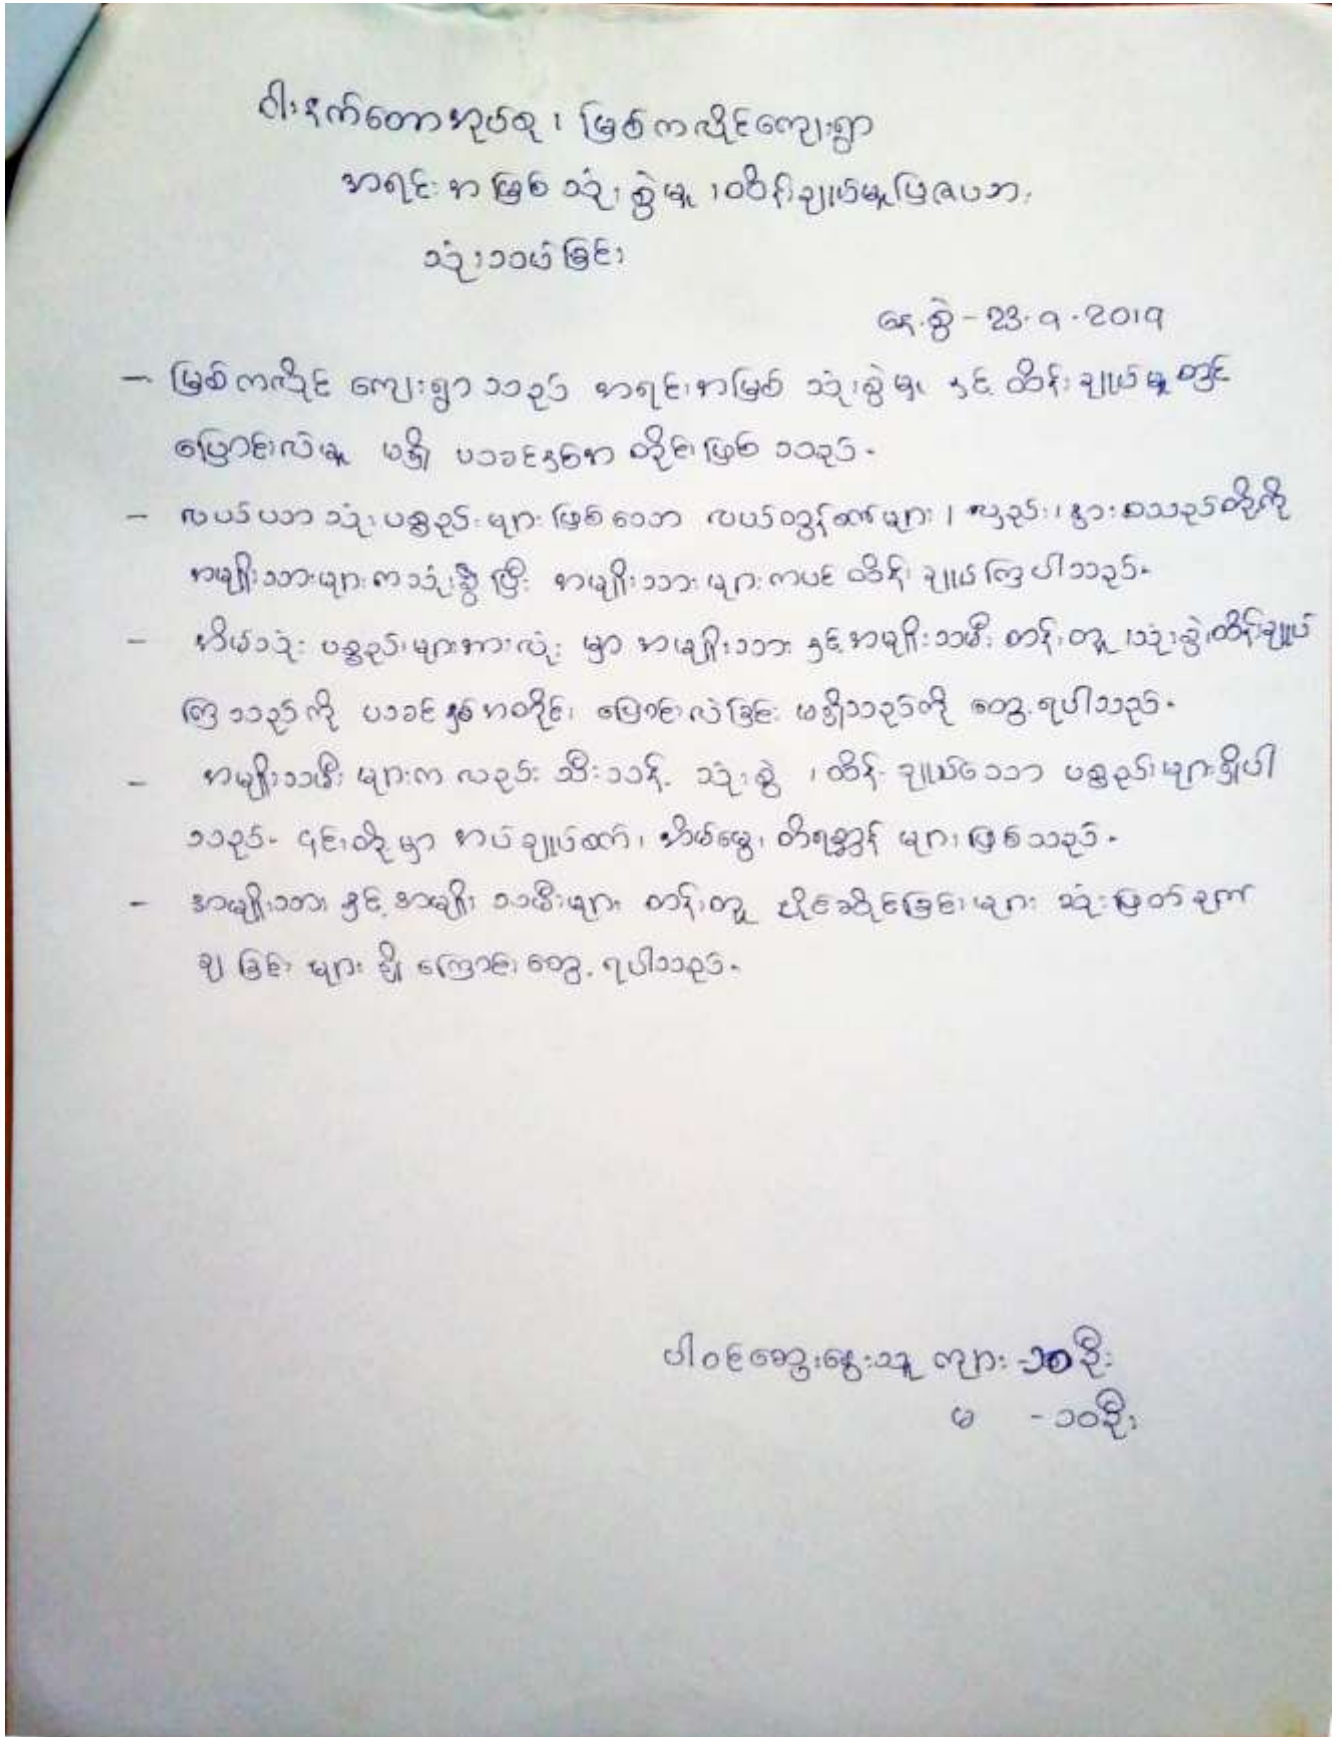 ဝါးနက်တောအုပ်စု၊ မြစ်ကလိုင်ကျေးရွာ
အရင်းအမြစ်သုံးစွဲမှု၊ထိန်းချုပ်မှုပြဇယား
သုံးသပ်ခြင်း
နေ့စွဲ - 23.9.2019
- မြစ်ကလိုင် ကျေးရွာသည် အရင်းအမြစ် သုံးစွဲမှု နှင့် ထိန်းချုပ်မှုတွင်
ပြောင်းလဲမှု မရှိ ယခင်နှစ်အ တိုင်းဖြစ် သည်။
- လယ်ယာသုံးပစ္စည်းများဖြစ်သော လယ်ထွန်စက်များ၊ လှည်း၊ နွားစသည်တို့ကို
အမျိုးသားများကသုံးစွဲပြီး အမျိုးသားများကပင် ထိန်းချုပ်ကြပါသည်။
- အိမ်သုံး ပစ္စည်းများအားလုံး မှာ အမျိုးသား နှင့်အမျိုးသမီး တန်းတူ သုံးစွဲ၊ထိန်းချုပ်
ကြသည်ကို ယခင်နှစ်အတိုင်း ပြောင်းလဲခြင်း မရှိသည်ကို တွေ့ရပါသည်။
- အမျိုးသမီးများက လည်း သီးသန့် သုံးစွဲ ၊ ထိန်းချုပ်သော ပစ္စည်းများရှိပါ
သည်။ ၎င်းတို့မှာ အပ်ချုပ်စက်၊ အိမ်မွေး တိရစ္ဆာန် များဖြစ်သည်။
- အမျိုးသား နှင့် အမျိုးသမီးများ တန်းတူ ပိုင်ဆိုင်ခြင်းများ သုံးဖြတ်
ချခြင်း များ ရှိကြောင်း တွေ့ရပါသည်။
ပါဝင်ဆွေးနွေးသူ ကျား - ၁၈ဦး
မ - ၁၀ဦး